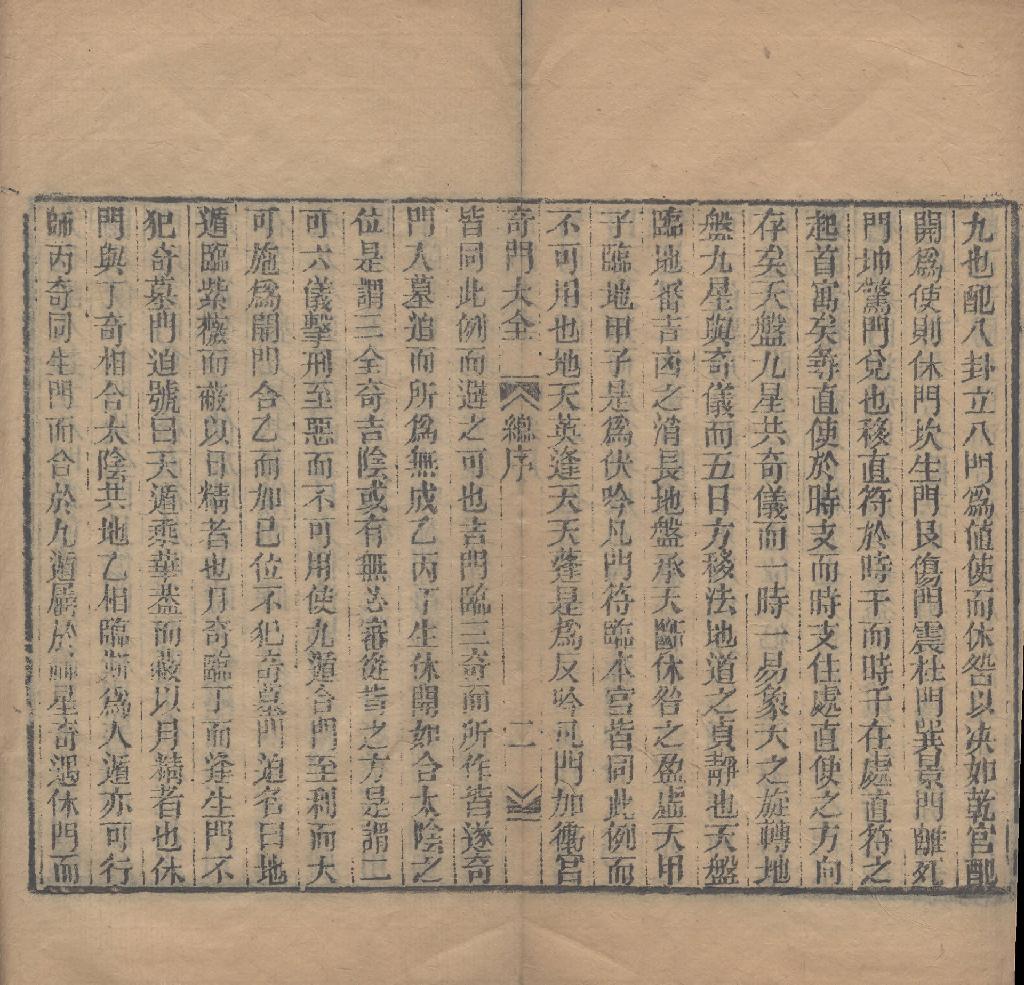 九也配八卦立八門爲値使而休咎以决如乾宫配
開爲使則休門坎生門艮傷門震杜門巽景門離死
門坤驚門兌也移直符於時干而時干在處直符之
起首寓矣尋直使於時支而時支住處直使之方向
存矣天盤九星共奇儀而一時一易象天之旋轉地
盤九星與奇儀而五日方移法地道之貞靜也天盤
臨地審吉凶之消長地盤承天斷休咎之盈虛天甲
子臨地甲子是爲伏吟凡門符臨本宫皆同此例而
不可用也地天英逢天天蓬是爲反吟凡門加衝宫
奇門大全 總序 二
皆同此例而避之可也吉門臨三奇而所作皆遂奇
門入墓追而所爲無成乙丙丁生休開如合太陰之
位是謂三全奇吉陰或有無必審從吉之方是謂二
可六儀擊刑至惡而不可用使九遁合門至利而大
可施爲開門合乙而加已位不犯奇墓門迫名曰地
遁臨紫薇而蔽以日精者也月奇臨丁而逢生門不
犯奇墓門迫號曰天遁乘華蓋而蔽以月精者也休
門與丁奇相合太陰共地乙相臨斯爲人遁亦可行
師丙奇同生門而合於九遁屬於神星奇遇休門而